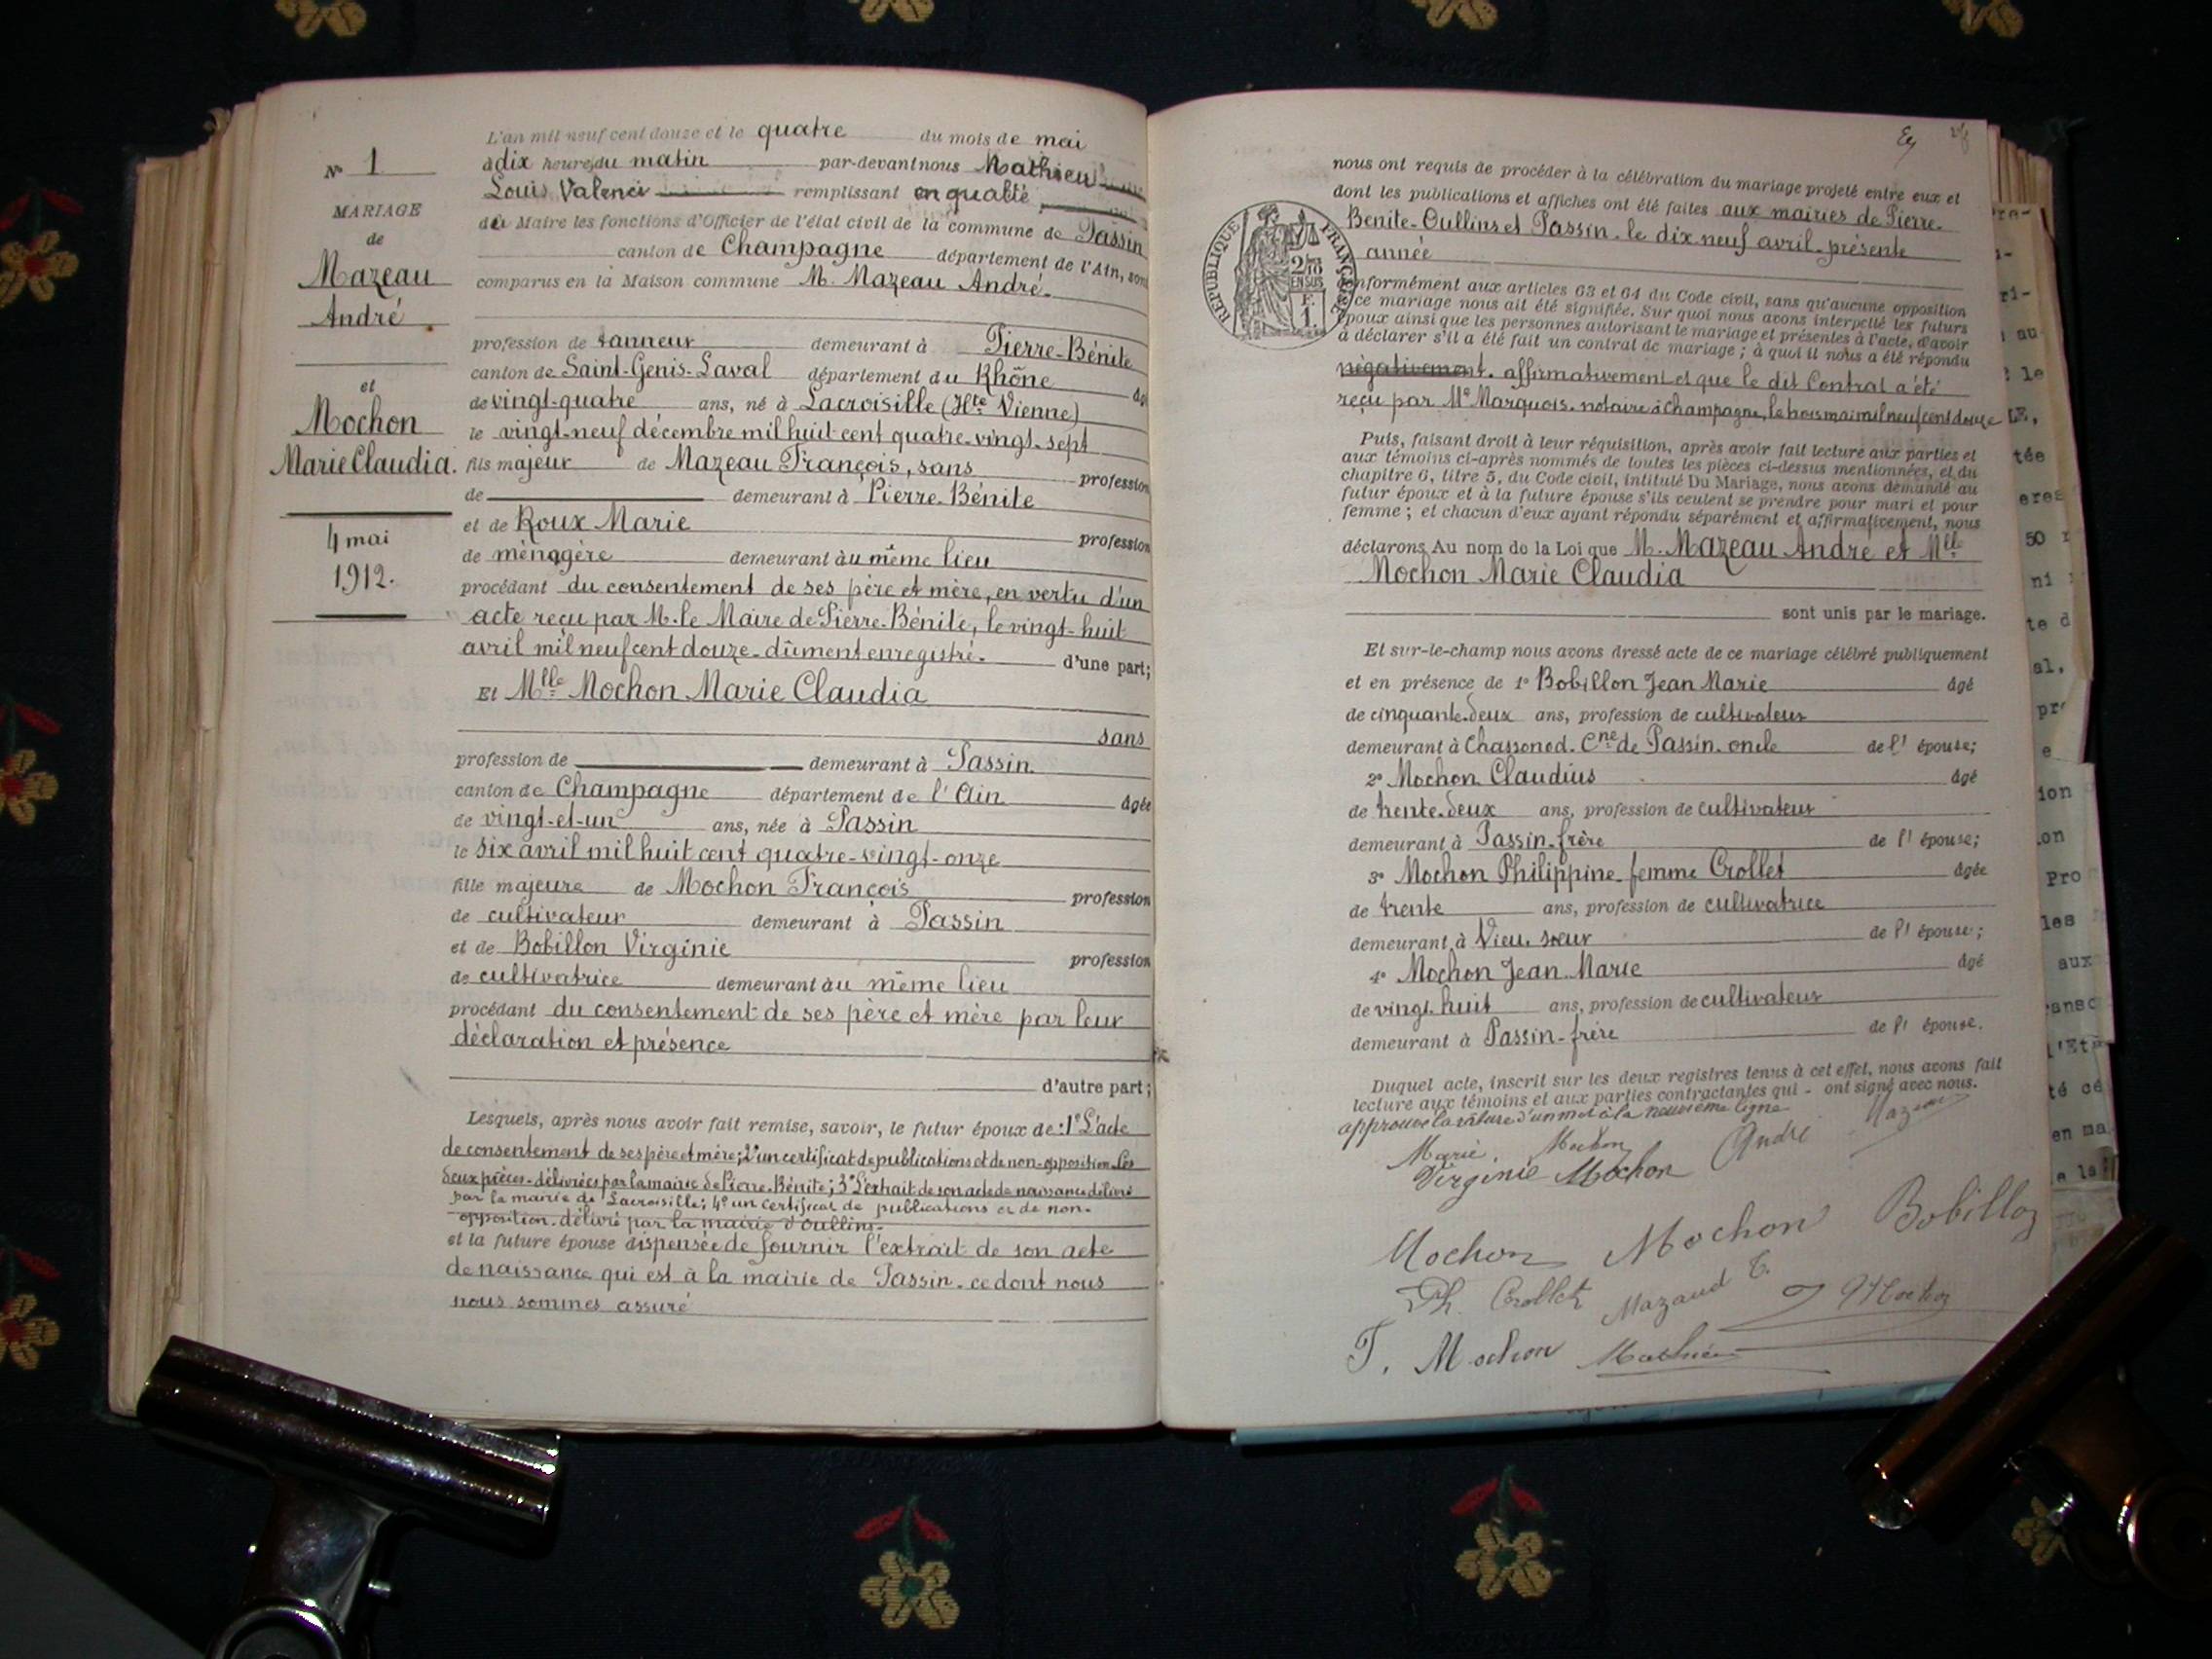 N° 1
MARIAGE
de
Mazeau
André
et
Mochon
Marie Claudia.
4 mai
1912.
L'an mil neuf cent douze et le quatre du mois de mai
à dix heures du matin par-devant nous Mathieu
Louis Valenci remplissant en qualité
de Maire les fonctions d'Officier de l'état civil de la commune de Passin
canton de Champagne département de l'Ain, sont
comparus en la Maison commune M. Mazeau André.
profession de tanneur demeurant à Pierre-Bénite
canton de Saint-Genis-Laval département du Rhône âgé
de vingt-quatre ans, né à Lacroisille (Hte Vienne)
le vingt-neuf décembre mil huit cent quatre-vingt-sept
fils majeur de Mazeau François, sans profession
de demeurant à Pierre-Bénite
et de Roux Marie profession
de ménagère demeurant au même lieu
procédant du consentement de ses père et mère, en vertu d'un
acte reçu par M. le Maire de Pierre-Bénite, le vingt-huit
avril mil neuf cent douze-dûment enregistré. d'une part;
Et Mlle Mochon Marie Claudia
sans
profession de demeurant à Passin
canton de Champagne département de l'Ain âgée
de vingt-et-un ans, née à Passin
le six avril mil huit cent quatre-vingt-onze
fille majeure de Mochon François profession
de cultivateur demeurant à Passin
et de Bobillon Virginie profession
de cultivatrice demeurant au même lieu
procédant du consentement de ses père et mère par leur
déclaration et présence
d'autre part;
Lesquels, après nous avoir fait remise, savoir, le futur époux de: 1° L'acte
de consentement de ses père et mère; 2° un certificat de publications et de non-opposition. Les
deux pièces-délivrées par la mairie de Pierre-Bénite; 3° L'extrait de son acte de naissance délivré
par la mairie de Lacroisille; 4° un certificat de publications et de non-
opposition. délivré par la mairie d'Oullins.
et la future épouse dispensée de fournir l'extrait de son acte
de naissance qui est à la mairie de Passin. ce dont nous
nous sommes assuré
nous ont requis de procéder à la célébration du mariage projeté entre eux et
dont les publications et affiches ont été faites aux mairies de Pierre-
Bénite-Oullins et Passin. le dix neuf avril. présente
année
RÉPUBLIQUE FRANÇAISE
2/10
EN SUS
F.
1.
conformément aux articles 63 et 64 du Code civil, sans qu'aucune opposition
à ce mariage nous ait été signifiée. Sur quoi nous avons interpellé les futurs
époux ainsi que les personnes autorisant le mariage et présentes à l'acte, d'avoir
à déclarer s'il a été fait un contrat de mariage; à quoi il nous a été répondu
négativement. affirmativement et que le dit Contrat a été
reçu par Me Marquois. notaire à Champagne, le trois mai mil neuf cent douze
Puis, faisant droit à leur réquisition, après avoir fait lecture aux parties et
aux témoins ci-après nommés de toutes les pièces ci-dessus mentionnées, et du
chapitre 6, titre 5, du Code civil, intitulé Du Mariage, nous avons demandé au
futur époux et à la future épouse s'ils veulent se prendre pour mari et pour
femme; et chacun d'eux ayant répondu séparément et affirmativement, nous
déclarons Au nom de la Loi que M. Mazeau André et Mlle
Mochon Marie Claudia
sont unis par le mariage.
Et sur-le-champ nous avons dressé acte de ce mariage célébré publiquement
et en présence de 1° Bobillon Jean Marie âgé
de cinquante-deux ans, profession de cultivateur
demeurant à Chassonod. Cne de Passin. oncle de l' épouse;
2° Mochon Claudius âgé
de trente-deux ans, profession de cultivateur
demeurant à Passin-frère de l' épouse;
3° Mochon Philippine-femme Crollet âgée
de trente ans, profession de cultivatrice
demeurant à Vieu, sœur de l' épouse;
4° Mochon Jean-Marie âgé
de vingt-huit ans, profession de cultivateur
demeurant à Passin-frère de l' épouse.
Duquel acte, inscrit sur les deux registres tenus à cet effet, nous avons fait
lecture aux témoins et aux parties contractantes qui - ont signé avec nous.
approuvé la rature d'un mot à la neuvième ligne
Marie Mochon André Mazeau
Virginie Mochon
Mochon Mochon Bobillon
Ph. Crollet Mazaud F. Mochon
F. Mochon Mathieu